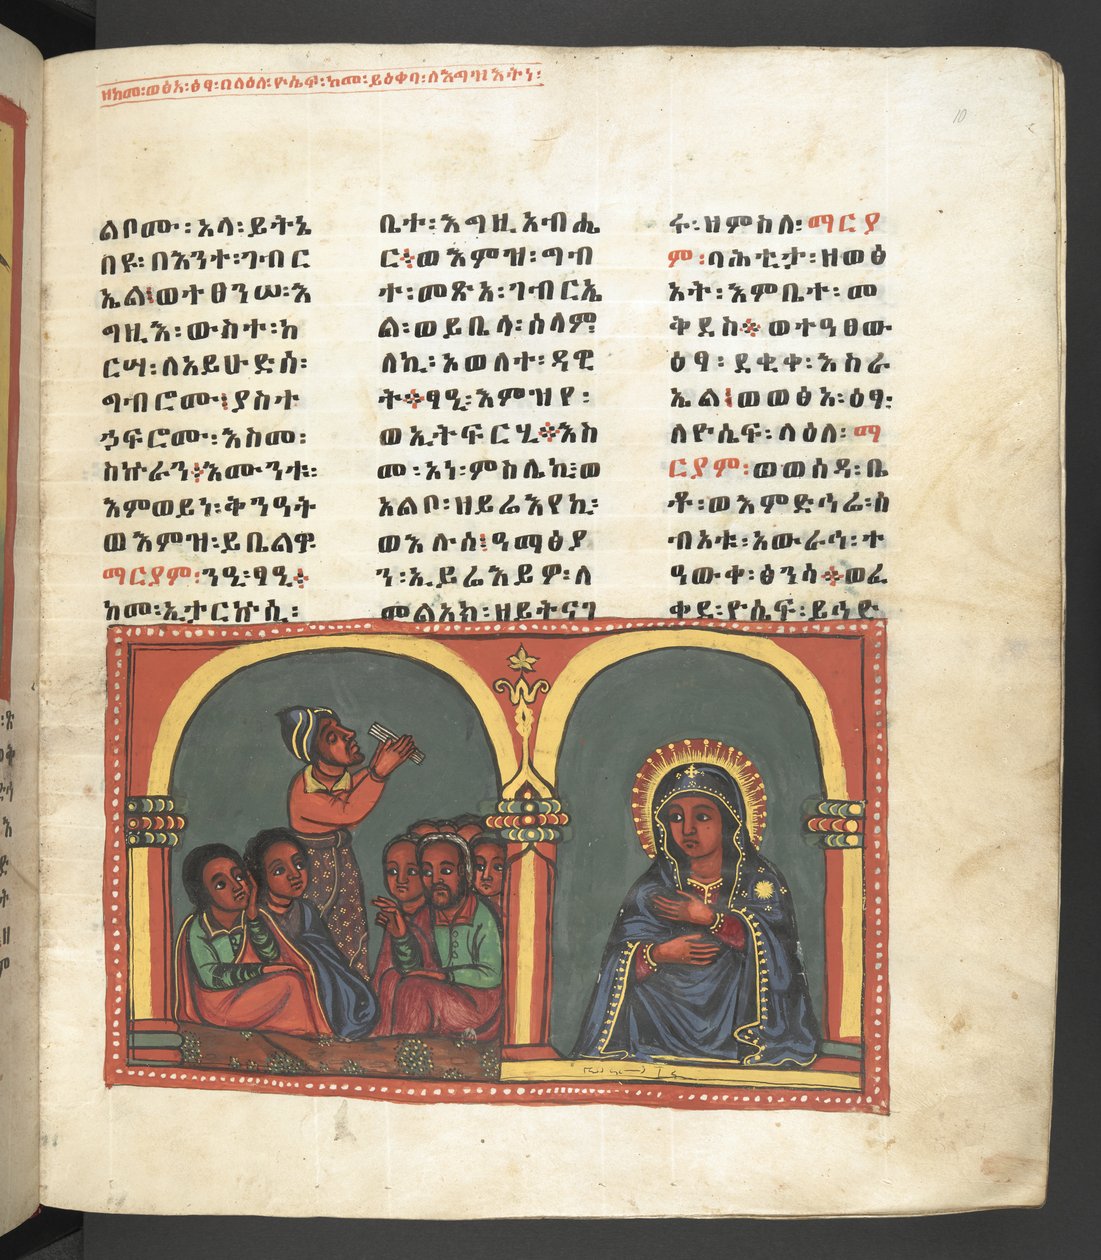 ዘከመ፡ወፅአ፡ዕፃ፡በላዕለ፡ዮሴፍ፡ከመ፡ይዕቀባ፡ለእግዝእትነ፡
10
ልቦሙ፡አላ፡ይትኔ
በዩ፡በእንተ፡ገብር
ኤል፤ወተፀንሠ፡እ
ግዚእ፡ውስተ፡ከ
ርሣ፡ለአይሁድሰ፡
ግብሮሙ፤ያስተ
ኃፍሮሙ፡እስመ፡
ስኩራን፡እሙንቱ፡
እምወይን፡ቅንዓት
ወእምዝ፡ይቤልዋ
ማርያም፡ንዒ፡ፃዒ፡
ከመ፡ኢታርኵሲ፡
ቤተ፡እግዚአብሔ
ር፡ወእምዝ፡ግብ
ተ፡መጽአ፡ገብርኤ
ል፡ወይቤላ፡ሰላም
ለኪ፡ኦወለተ፡ዳዊ
ት፡ፃዒ፡እምዝየ፡
ወኢትፍርሂ፡እስ
መ፡አነ፡ምስሌኪ፡ወ
አልቦ፡ዘይሬእየኪ፡
ወእሉሰ፤ዓማፅያ
ን፡ኢይሬእይዎ፡ለ
መልአክ፡ዘይትናገ
ሩ፡ዝምስለ፡ማርያ
ም፡ባሕቲታ፡ዘወፅ
አት፡እምቤተ፡መ
ቅደስ፡ወተዓፀው
ዕፃ፡ደቂቀ፡እስራ
ኤል፤ወወፅአ፡ዕፃ፡
ለዮሴፍ፡ላዕለ፡ማ
ርያም፡ወወሰዳ፡ቤ
ቶ፡ወእምድኅሬ፡ሰ
ብአቱ፡አውራኅ፡ተ
ዓውቀ፡ፅንሳ፡ወፈ
ቀደ፡ዮሴፍ፡ይኅድ